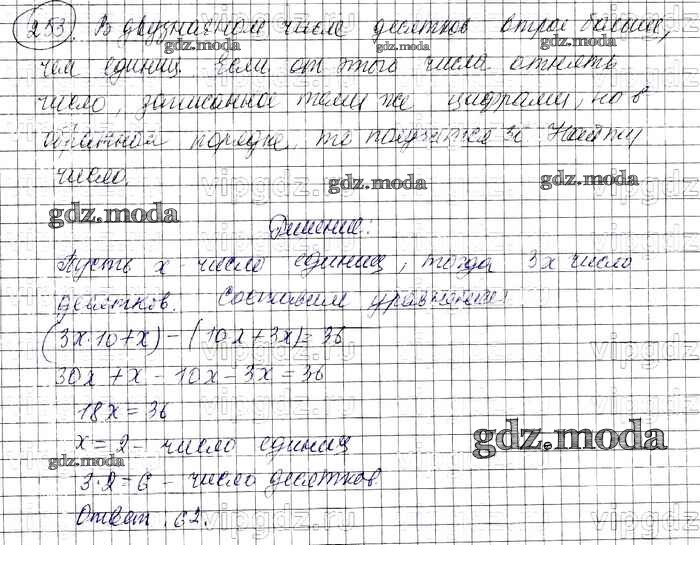 253. В двузначном числе десятков втрое больше,
чем единиц. Если от этого числа отнять
число, записанное теми же цифрами, но в
обратном порядке, то получится 36 Найти
число.
Решение:
Пусть x - число единиц, тогда 3x число
десятков. Составим уравнение:
(3x·10+x) - (10x+3x) = 36
30x + x - 10x - 3x = 36
18x = 36
x = 2 - число единиц
3·2 = 6 - число десятков
Ответ. 62.
gdz.moda
gdz.moda
gdz.moda
gdz.moda
gdz.moda
gdz.moda
gdz.moda
gdz.moda
vipgdz.ru
vipgdz.ru
vipgdz.ru